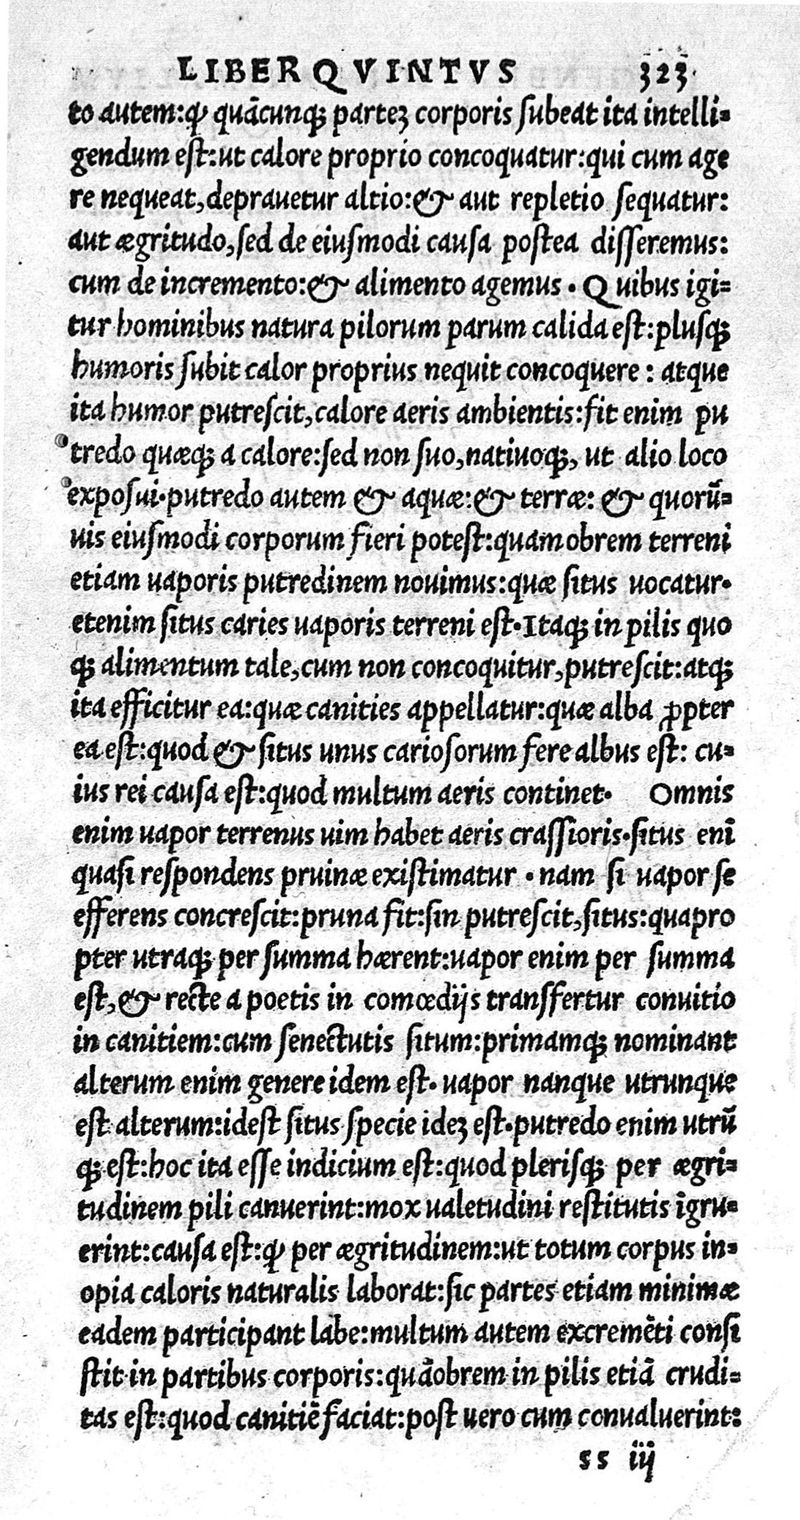 LIBER QVINTVS 323
to autem:ꝙ quãcunqꝫ parteʒ corporis ſubeat ita intelli-
gendum eſt:ut calore proprio concoquatur:qui cum age
re nequeat,deprauetur altio:& aut repletio ſequatur:
aut ægritudo,ſed de eiuſmodi cauſa poſtea diſſeremus:
cum de incremento:& alimento agemus. Quibus igi-
tur hominibus natura pilorum parum calida eſt:pluſqꝫ
humoris ſubit calor proprius nequit concoquere: atque
ita humor putreſcit,calore aeris ambientis:fit enim pu
tredo quæqꝫ a calore:ſed non ſuo,natiuoqꝫ, ut alio loco
expoſui.putredo autem & aquæ:& terræ: & quorũ-
uis eiuſmodi corporum fieri poteſt:quamobrem terreni
etiam uaporis putredinem nouimus:quæ ſitus uocatur.
etenim ſitus caries uaporis terreni eſt.Itaqꝫ in pilis quo
qꝫ alimentum tale,cum non concoquitur,putreſcit:atqꝫ
ita efficitur ea:quæ canities appellatur:quæ alba ꝓpter
ea eſt:quod & ſitus unus carioſorum fere albus eſt: cu-
ius rei cauſa eſt:quod multum aeris continet. Omnis
enim uapor terrenus uim habet aeris craſſioris.ſitus enĩ
quaſi reſpondens pruinæ exiſtimatur . nam ſi uapor ſe
efferens concreſcit:pruna fit:ſin putreſcit,ſitus:quapro
pter utraqꝫ per ſumma hærent:uapor enim per ſumma
eſt,& recte a poetis in comœdijs tranſfertur conuitio
in canitiem:cum ſenectutis ſitum:primamqꝫ nominant
alterum enim genere idem eſt. uapor nanque utrunque
eſt alterum:ideſt ſitus ſpecie ideʒ eſt.putredo enim utrũ
qꝫ eſt:hoc ita eſſe indicium eſt:quod pleriſqꝫ per ægri-
tudinem pili canuerint:mox ualetudini reſtitutis ĩgru-
erint:cauſa eſt:ꝙ per ægritudinem:ut totum corpus in-
opia caloris naturalis laborat:ſic partes etiam minimæ
eadem participant labe:multum autem excremẽti conſi
ſtit in partibus corporis:quãobrem in pilis etiã crudi-
tas eſt:quod canitiẽ faciat:poſt uero cum conualuerint:
ss iij